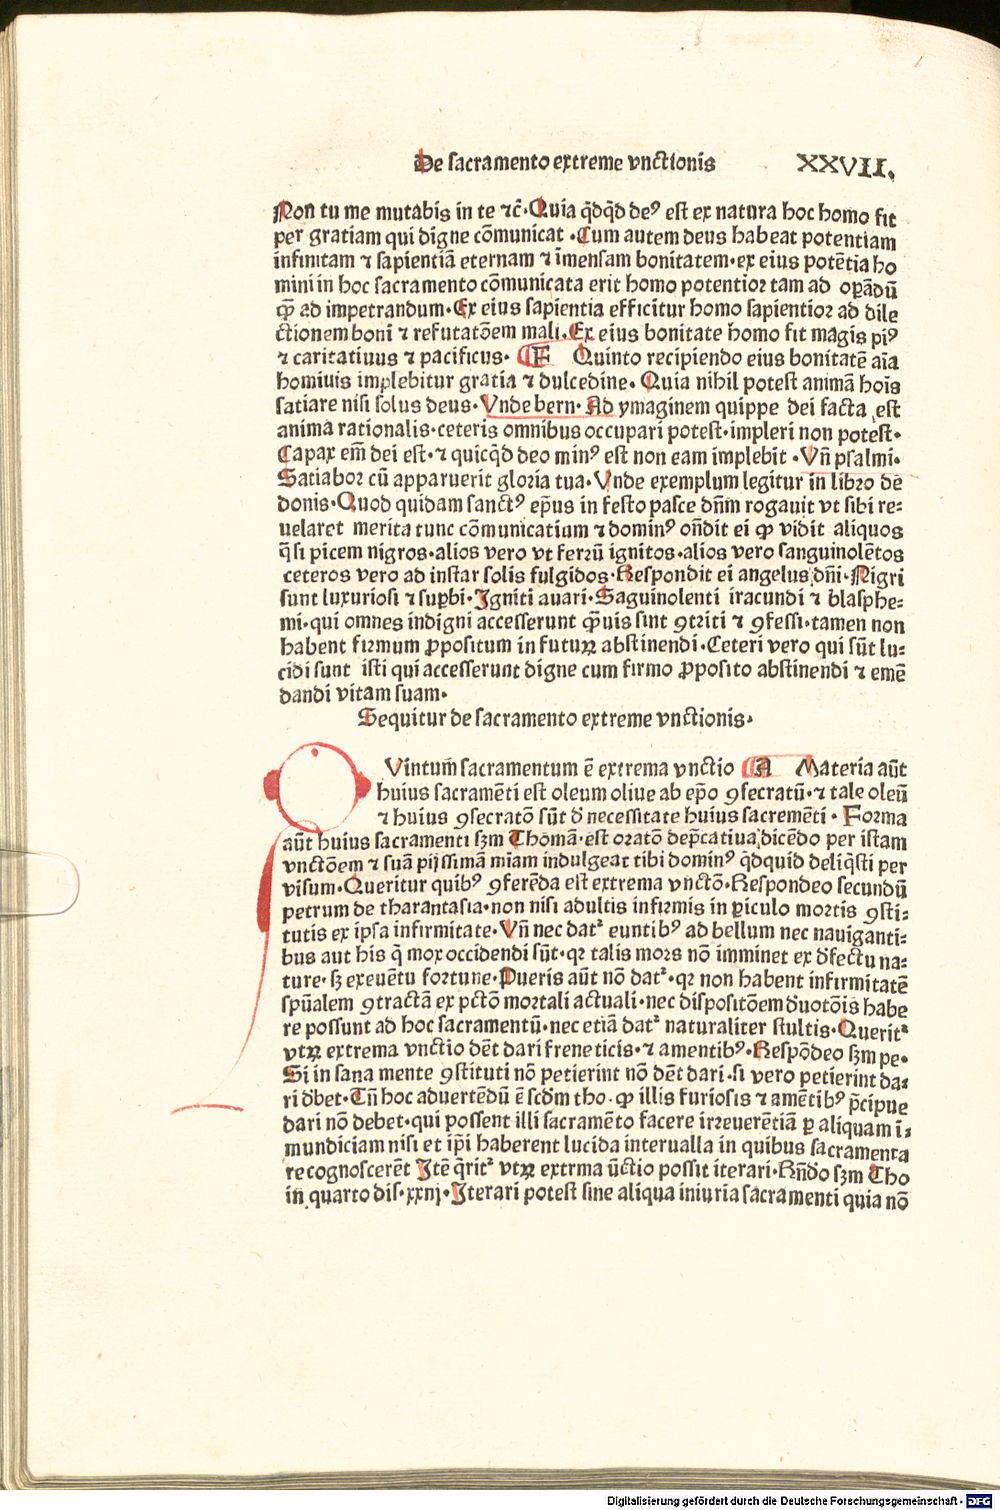 De sacramento extreme vnctionis XXVII.
Non tu me mutabis in te ⁊c̄· Quia q̄dq̄d deꝰ est ex natura hoc homo fit
per gratiam qui digne cōmunicat ·Cum autem deus habeat potentiam
infinitam ⁊ sapientiā eternam ⁊ īmensam bonitatem·ex eius potētia ho
mini in hoc sacramento cōmunicata erit homo potentior tam ad oꝑādū
ꝙ̄ ad impetrandum·Ex eius sapientia efficitur homo sapientior ad dile
ctionem boni ⁊ refutatōem mali.Ex eius bonitate homo fit magis piꝰ
⁊ caritatiuus ⁊ pacificus· F Quinto recipiendo eius bonitatē aīa
homiuis implebitur gratia ⁊ dulcedine· Quia nihil potest animā hoīs
satiare nisi solus deus·Vnde bern· Ad ymaginem quippe dei facta est
anima rationalis·ceteris omnibus occupari potest·impleri non potest·
Capax em̄ dei est·⁊ quicq̄d deo minꝰ est non eam implebit ·Vn̄ psalmi·
Satiabor cū apparuerit gloria tua· Vnde exemplum legitur in libro de
donis·Quod quidam sanctꝰ ep̄us in festo pasce dn̄m rogauit vt sibi re⸗
uelaret merita tunc cōmunicatium ⁊ dominꝰ on̄dit ei ꝙ vidit aliquos
q̄si picem nigros·alios vero vt ferrū ignitos·alios vero sanguinolētos
ceteros vero ad instar solis fulgidos·Respondit ei angelus dn̄i·Nigri
sunt luxuriosi ⁊ suꝑbi·Igniti auari·Saguinolenti iracundi ⁊ blasphe⸗
mi·qui omnes indigni accesserunt ꝙ̄uis sint ꝯtriti ⁊ ꝯfessi·tamen non
habent firmum ꝓpositum in futurꝝ abstinendi·Ceteri vero qui sūt lu⸗
cidi sunt isti qui accesserunt digne cum firmo ꝓposito abstinendi ⁊ emē
dandi vitam suam·
Sequitur de sacramento extreme vnctionis·
QVintum̄ sacramentum ē extrema vnctio A Materia aūt
huius sacramēti est oleum oliue ab ep̄o ꝯsecratū·⁊ tale oleū
⁊ huius ꝯsecratō sūt d̄ necessitate huius sacremēti · Forma
aūt huius sacramenti sꝫm Thomā·est oratō dep̄catiua dicēdo per istam
vnctōem ⁊ suā pijssimā miam indulgeat tibi dominꝰ q̄dquid deliq̄sti per
visum·Queritur quibꝰ ꝯferēda est extrema vnctō·Respondeo secundū
petrum de tharantasia·non nisi adultis infirmis in ꝑiculo mortis ꝯsti⸗
tutis ex ipsa infirmitate·Vn̄ nec datᷣ euntibꝰ ad bellum nec nauiganti⸗
bus aut his q̄ mox occidendi sūt·qꝛ talis mors nō imminet ex d̄fectu na⸗
ture·sꝫ exeuētu fortune·Pueris aūt nō datᷣ·qꝛ non habent infirmitatē
spūalem ꝯtractā ex pctō mortali actuali·nec dispositōem d̄uotōis habe
re possunt ad hoc sacramentū·nec etiā datᷣ naturaliter stultis·Queritᷣ
vtꝝ extrema vnctio dēt dari freneticis·⁊ amentibꝰ·Respōdeo sꝫm pe·
Si in sana mente ꝯstituti nō petierint nō dēt dari·si vero petierint da⸗
ri d̄bet·Tn̄ hoc aduertēdū ē scd̄m tho·ꝙ illis furiosis ⁊ amētibꝰ p̄cipue
dari nō debet·qui possent illi sacramēto facere irreuerētiā ꝑ aliquam ī⸗
mundiciam nisi et ip̄i haberent lucida interualla in quibus sacramenta
recognoscerēt Itē q̄ritᷣ vtꝝ extrma ūctio possit iterari·Rn̄do sꝫm Tho
in quarto dis·xxnj·Iterari potest sine aliqua iniuria sacramenti quia nō
Digitalisierung gefördert durch die Deutsche Forschungsgemeinschaft - DFG